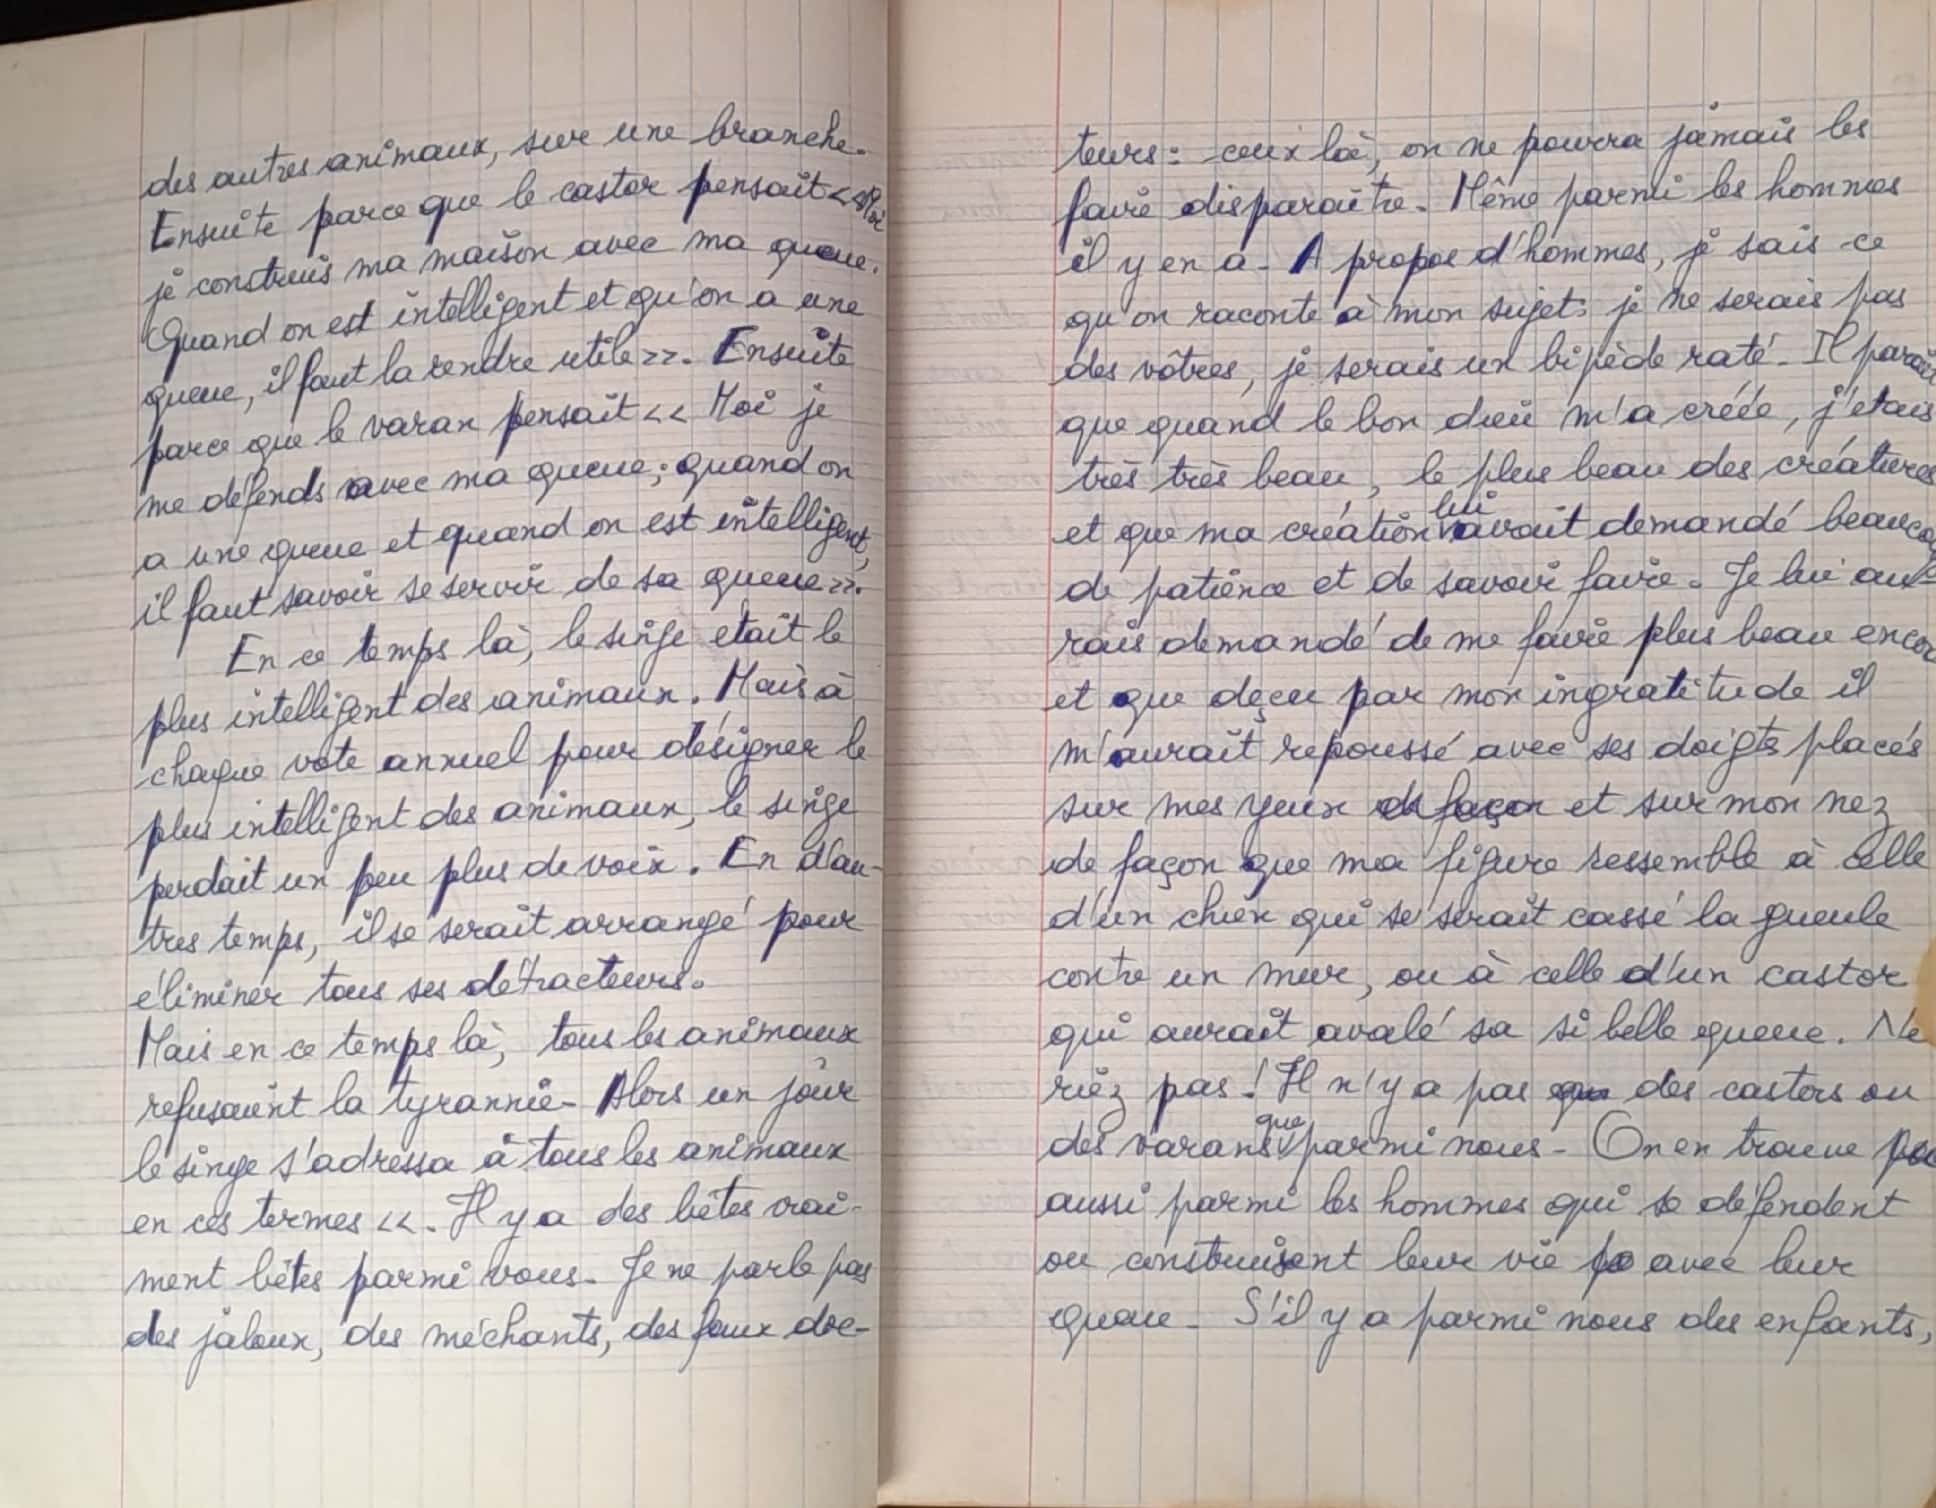 des autres animaux, sur une branche.
Ensuite parce que le castor pensait << Moi
je construis ma maison avec ma queue.
Quand on est intelligent et qu'on a une
queue, il faut la rendre utile >>. Ensuite
parce que le varan pensait << Moi je
me défends avec ma queue; quand on
a une queue et quand on est intelligent,
il faut savoir se servir de sa queue >>.
En ce temps là, le singe était le
plus intelligent des animaux. Mais à
chaque vote annuel pour désigner le
plus intelligent des animaux, le singe
perdait un peu plus de voix. En d'au-
tres temps, il se serait arrangé pour
éliminer tous ses détracteurs.
Mais en ce temps là, tous les animaux
refusaient la tyrannie. Alors un jour
le singe s'adressa à tous les animaux
en ces termes <<. Il y a des bêtes vrai-
ment bêtes parmi vous. Je ne parle pas
des jaloux, des méchants, des faux doc-
teurs: ceux là, on ne pourra jamais les
faire disparaître. Même parmi les hommes
il y en a. A propos d'hommes, je sais ce
qu'on raconte à mon sujet: je ne serais pas
des vôtres, je serais un bipède raté. Il parait
que quand le bon dieu m'a créée, j'étais
très très beau, le plus beau des créatures
et que ma création lui avait demandé beaucoup
de patience et de savoir faire. Je lui au-
rais demandé de me faire plus beau encor
et que déçu par mon ingratitude il
m'aurait repoussé avec ses doigts placés
sur mes yeux de façon et sur mon nez
de façon que ma figure ressemble à celle
d'un chien qui se serait cassé la gueule
contre un mur, ou à celle d'un castor
qui aurait avalé sa si belle queue. Ne
riez pas! Il n'y a pas que des castors ou
des varans que parmi nous. On en trouve
aussi parmi les hommes qui se défendent
ou construisent leur vie avec leur
queue. S'il y a parmi nous des enfants,